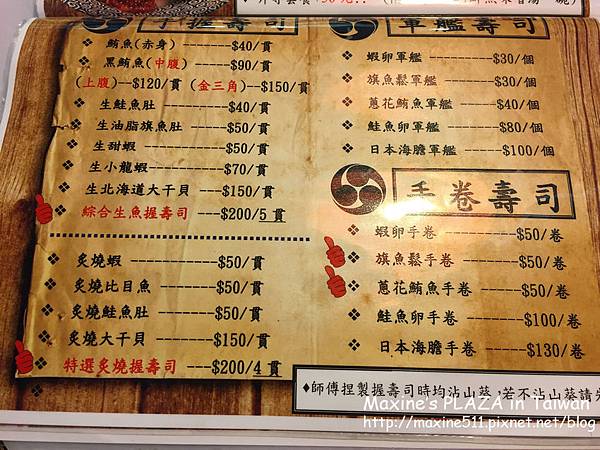 手握壽司
鮪魚(赤身) ------$40/貫
黑鮪魚(中腹) ------$90/貫
(上腹)--$120/貫 (金三角)--$150/貫
生鮭魚肚 ---------$40/貫
生油脂旗魚肚 -----$50/貫
生甜蝦 -----------$50/貫
生小龍蝦----------$70/貫
生北海道大干貝 ---$150/貫
綜合生魚握壽司 ---$200/5貫
炙燒蝦 -----------$50/貫
炙燒比目魚 -------$50/貫
炙燒鮭魚肚 -------$50/貫
炙燒大干貝 ------$150/貫
特選炙燒握壽司 ----$200/4貫
軍艦壽司
蝦卵軍艦 ---------$30/個
旗魚鬆軍艦 -------$30/個
蔥花鮪魚軍艦 -----$40/個
鮭魚卵軍艦 -------$80/個
日本海膽軍艦 -----$100/個
手卷壽司
蝦卵手卷 ---------$50/卷
旗魚鬆手卷 -------$50/卷
蔥花鮪魚手卷 -----$50/卷
鮭魚卵手卷 ------$100/卷
日本海膽手卷 -----$130/卷
♦師傅捏製握壽司時均沾山葵,若不沾山葵請
Maxine's PLAZA in Taiwan
http://maxine511.pixnet.net/blog